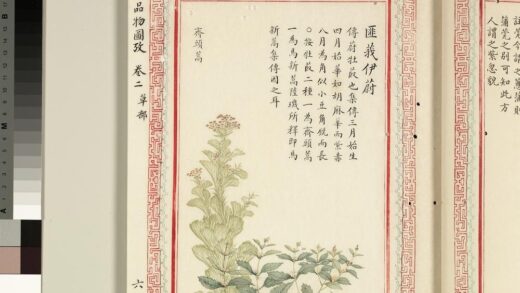 蒲莞之別可知此方
人謂之
匪莪伊蔚
傳蔚牡菣也集傳三月始生
四月始華如胡麻華而紫赤
八月為角似小豆角銳而長
○按牡菣二種一為齊頭蒿
一為馬新蒿陸璣所釋即馬
新蒿集傳因之耳
齊頭蒿
品物圖攷 卷二 草部
六